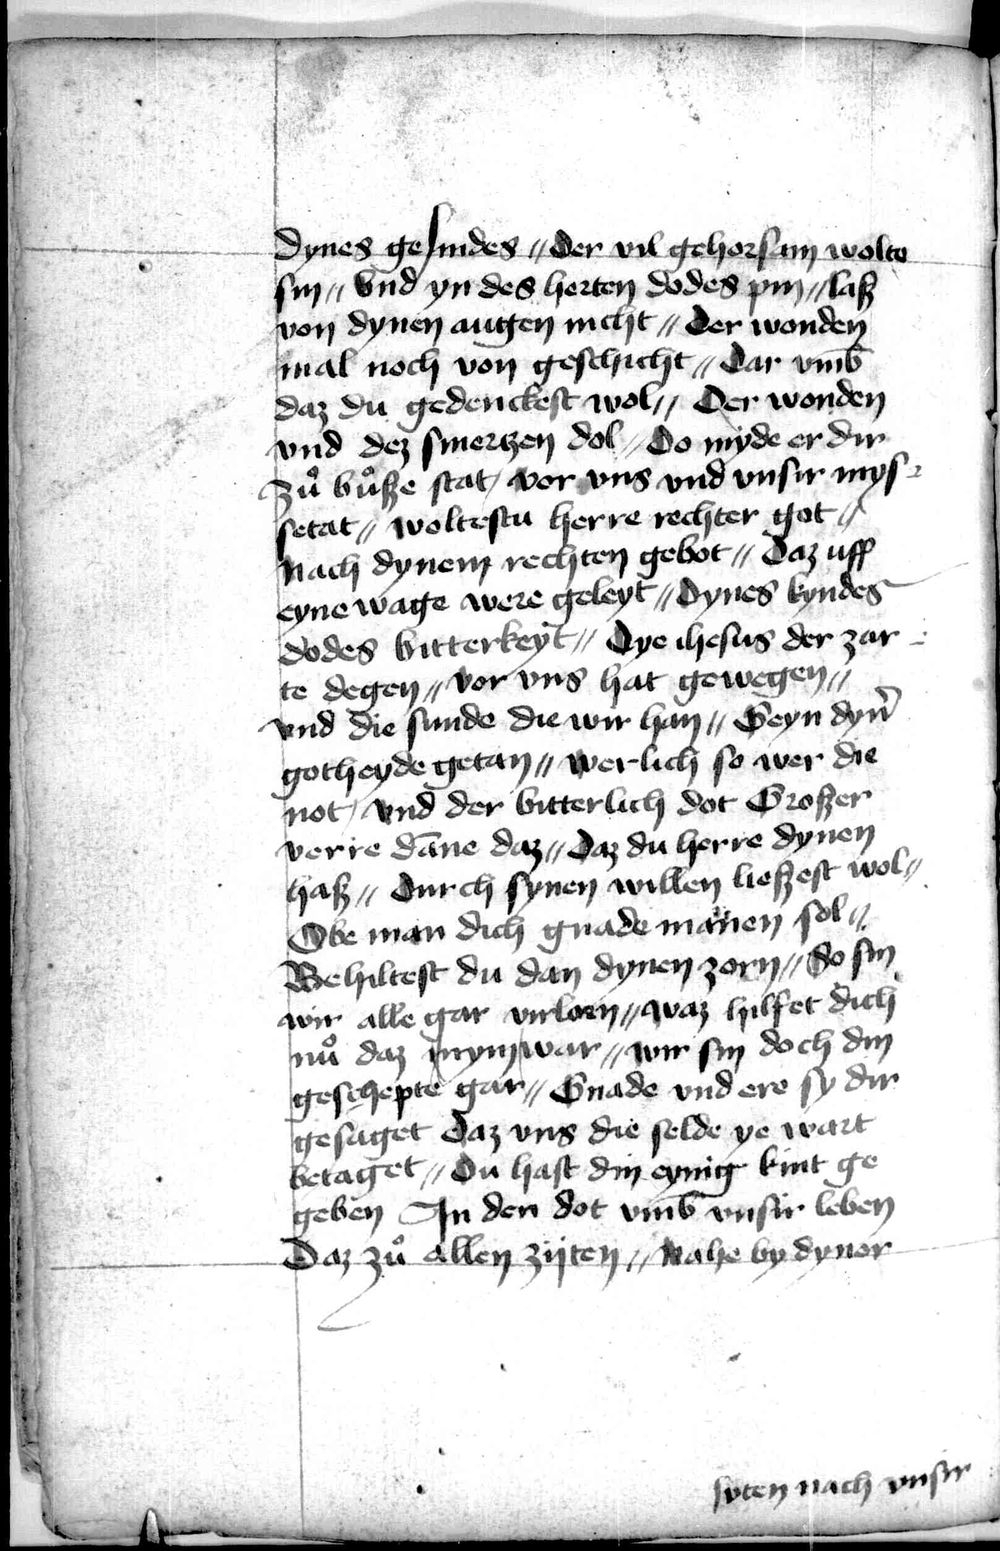 dynes gesindes // Der vil gehorsam wolte
sin // vnd yn des herten dodes pin // laß
von dynen augen nicht // Der wonden
mal noch von geschicht // Dar vmb
daz du gedenckest wol // Der wonden
vnd dez smertzen dol // Do myde er dir
zuͦ buͦße stat / vor vns vnd vnsir mys-
setat // woltestu herre rechter got //
Nach dynem rechten gebot // Daz uff
eyne wage were geleyt // Dynes kyndes
dodes bitterkeyt // Dye ihesus der zar-
te degen // vor vns hat gewegen //
vnd die sunde die wir han // Geyn dyn̄
gotheyde getan // werlich so wer die
not / vnd der bitterlich dot Großer
verre dāne daz // Daz du herre dynen
haß // Durch synen willen ließest wol //
Obe man dich gnade manen sol //
Behiltest du dan dynen zorn // So sin
wir alle gar virlorn // waz hilfet dich
nuͦ daz war // wir sin doch din
geschepte gar // Gnade vnd ere sy dir
gesaget Daz vns die selde ye wart
betaget // Du hast din eynig kint ge
geben In den dot vmb vnsir leben
Daz zuͦ allen zijten // Nahe by dyner
syten nach vnsir